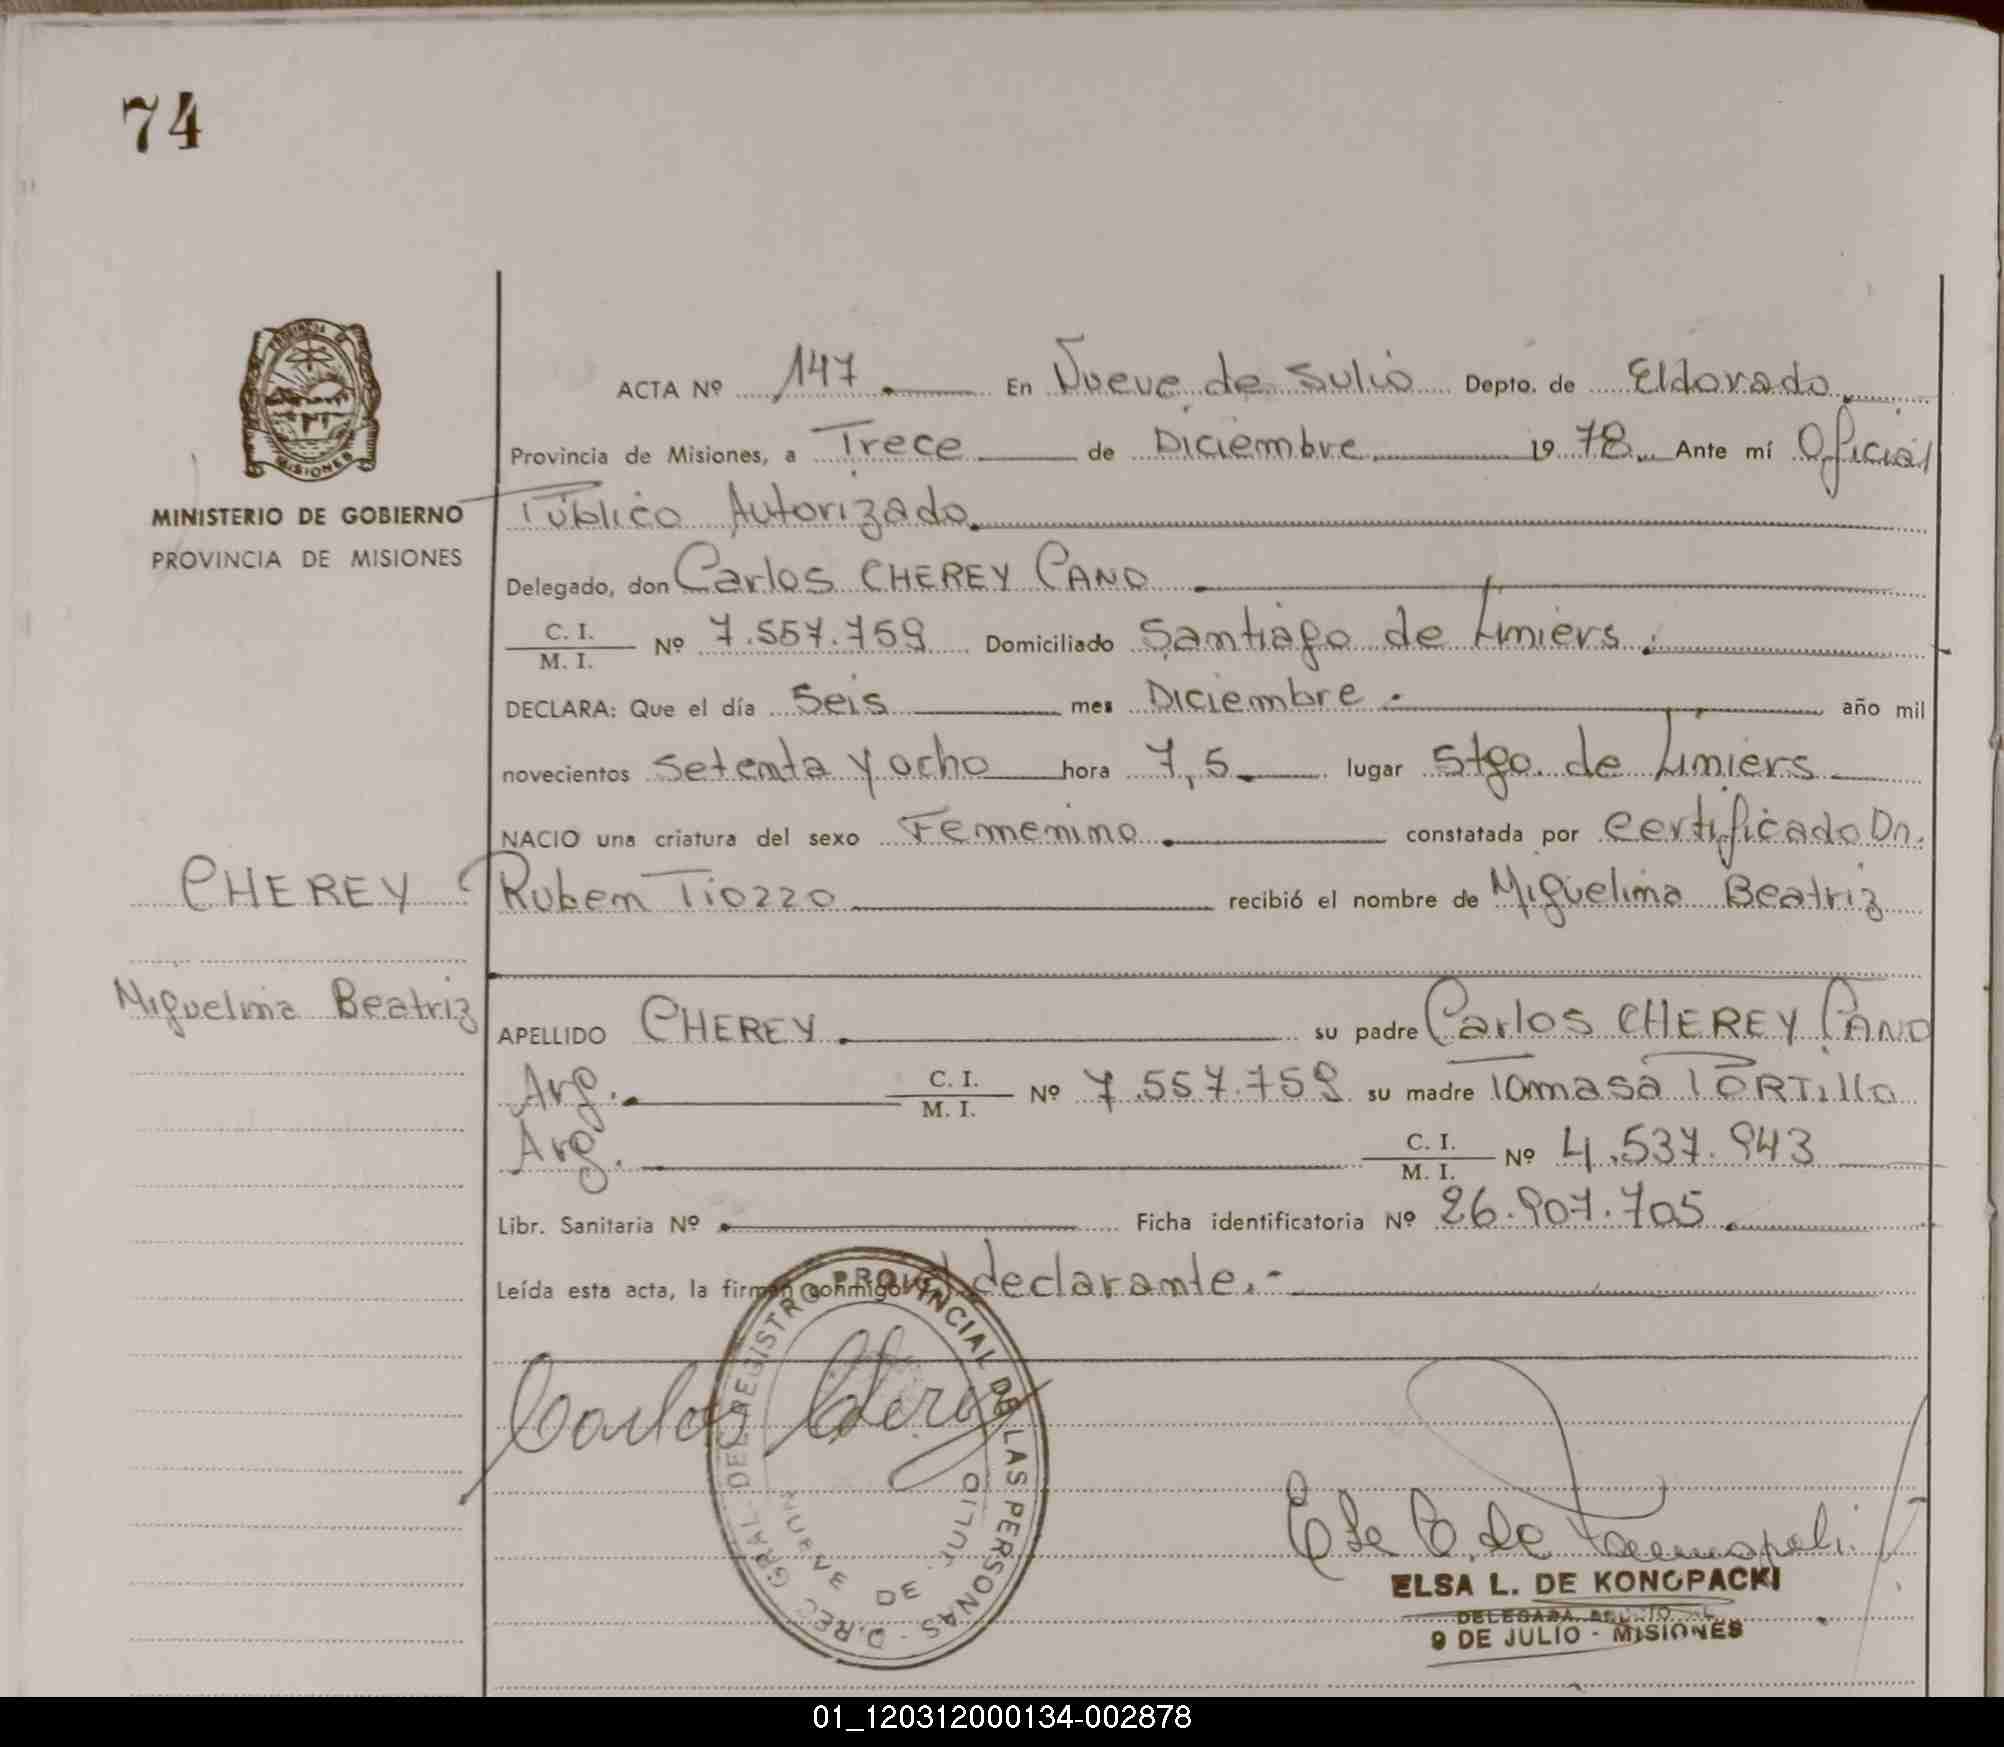 74
MINISTERIO DE GOBIERNO
PROVINCIA DE MISIONES
MISIONES
ACTA Nº 147 En Nueve de Julio Depto. de Eldorado
Provincia de Misiones, a Trece de Diciembre 1978 Ante mí Oficial
Público Autorizado
Delegado, don Carlos CHEREY CANO
C. I.
M. I. Nº 7.557.759 Domiciliado Santiago de Liniers
DECLARA: Que el día Seis mes Diciembre año mil
novecientos Setenta y ocho hora 7,5 lugar Stgo. de Liniers
NACIO una criatura del sexo Femenino constatada por certificado Dn.
Ruben Tiozzo recibió el nombre de Miguelina Beatriz
CHEREY
Miguelina Beatriz
APELLIDO CHEREY su padre Carlos CHEREY CANO
Arg. C. I.
M. I. Nº 7.557.759 su madre Tomasa PORTILLO
Arg. C. I.
M. I. Nº 4.537.943
Libr. Sanitaria Nº Ficha identificatoria Nº 26.907.705
Leída esta acta, la firman conmigo el declarante.-
Carlos Cherey
D.REC. GRAL. DEL REGISTRO PROVINCIAL DE LAS PERSONAS -
NUEVE DE JULIO
ELSA L. DE KONOPACKI
9 DE JULIO - MISIONES
01_120312000134-002878